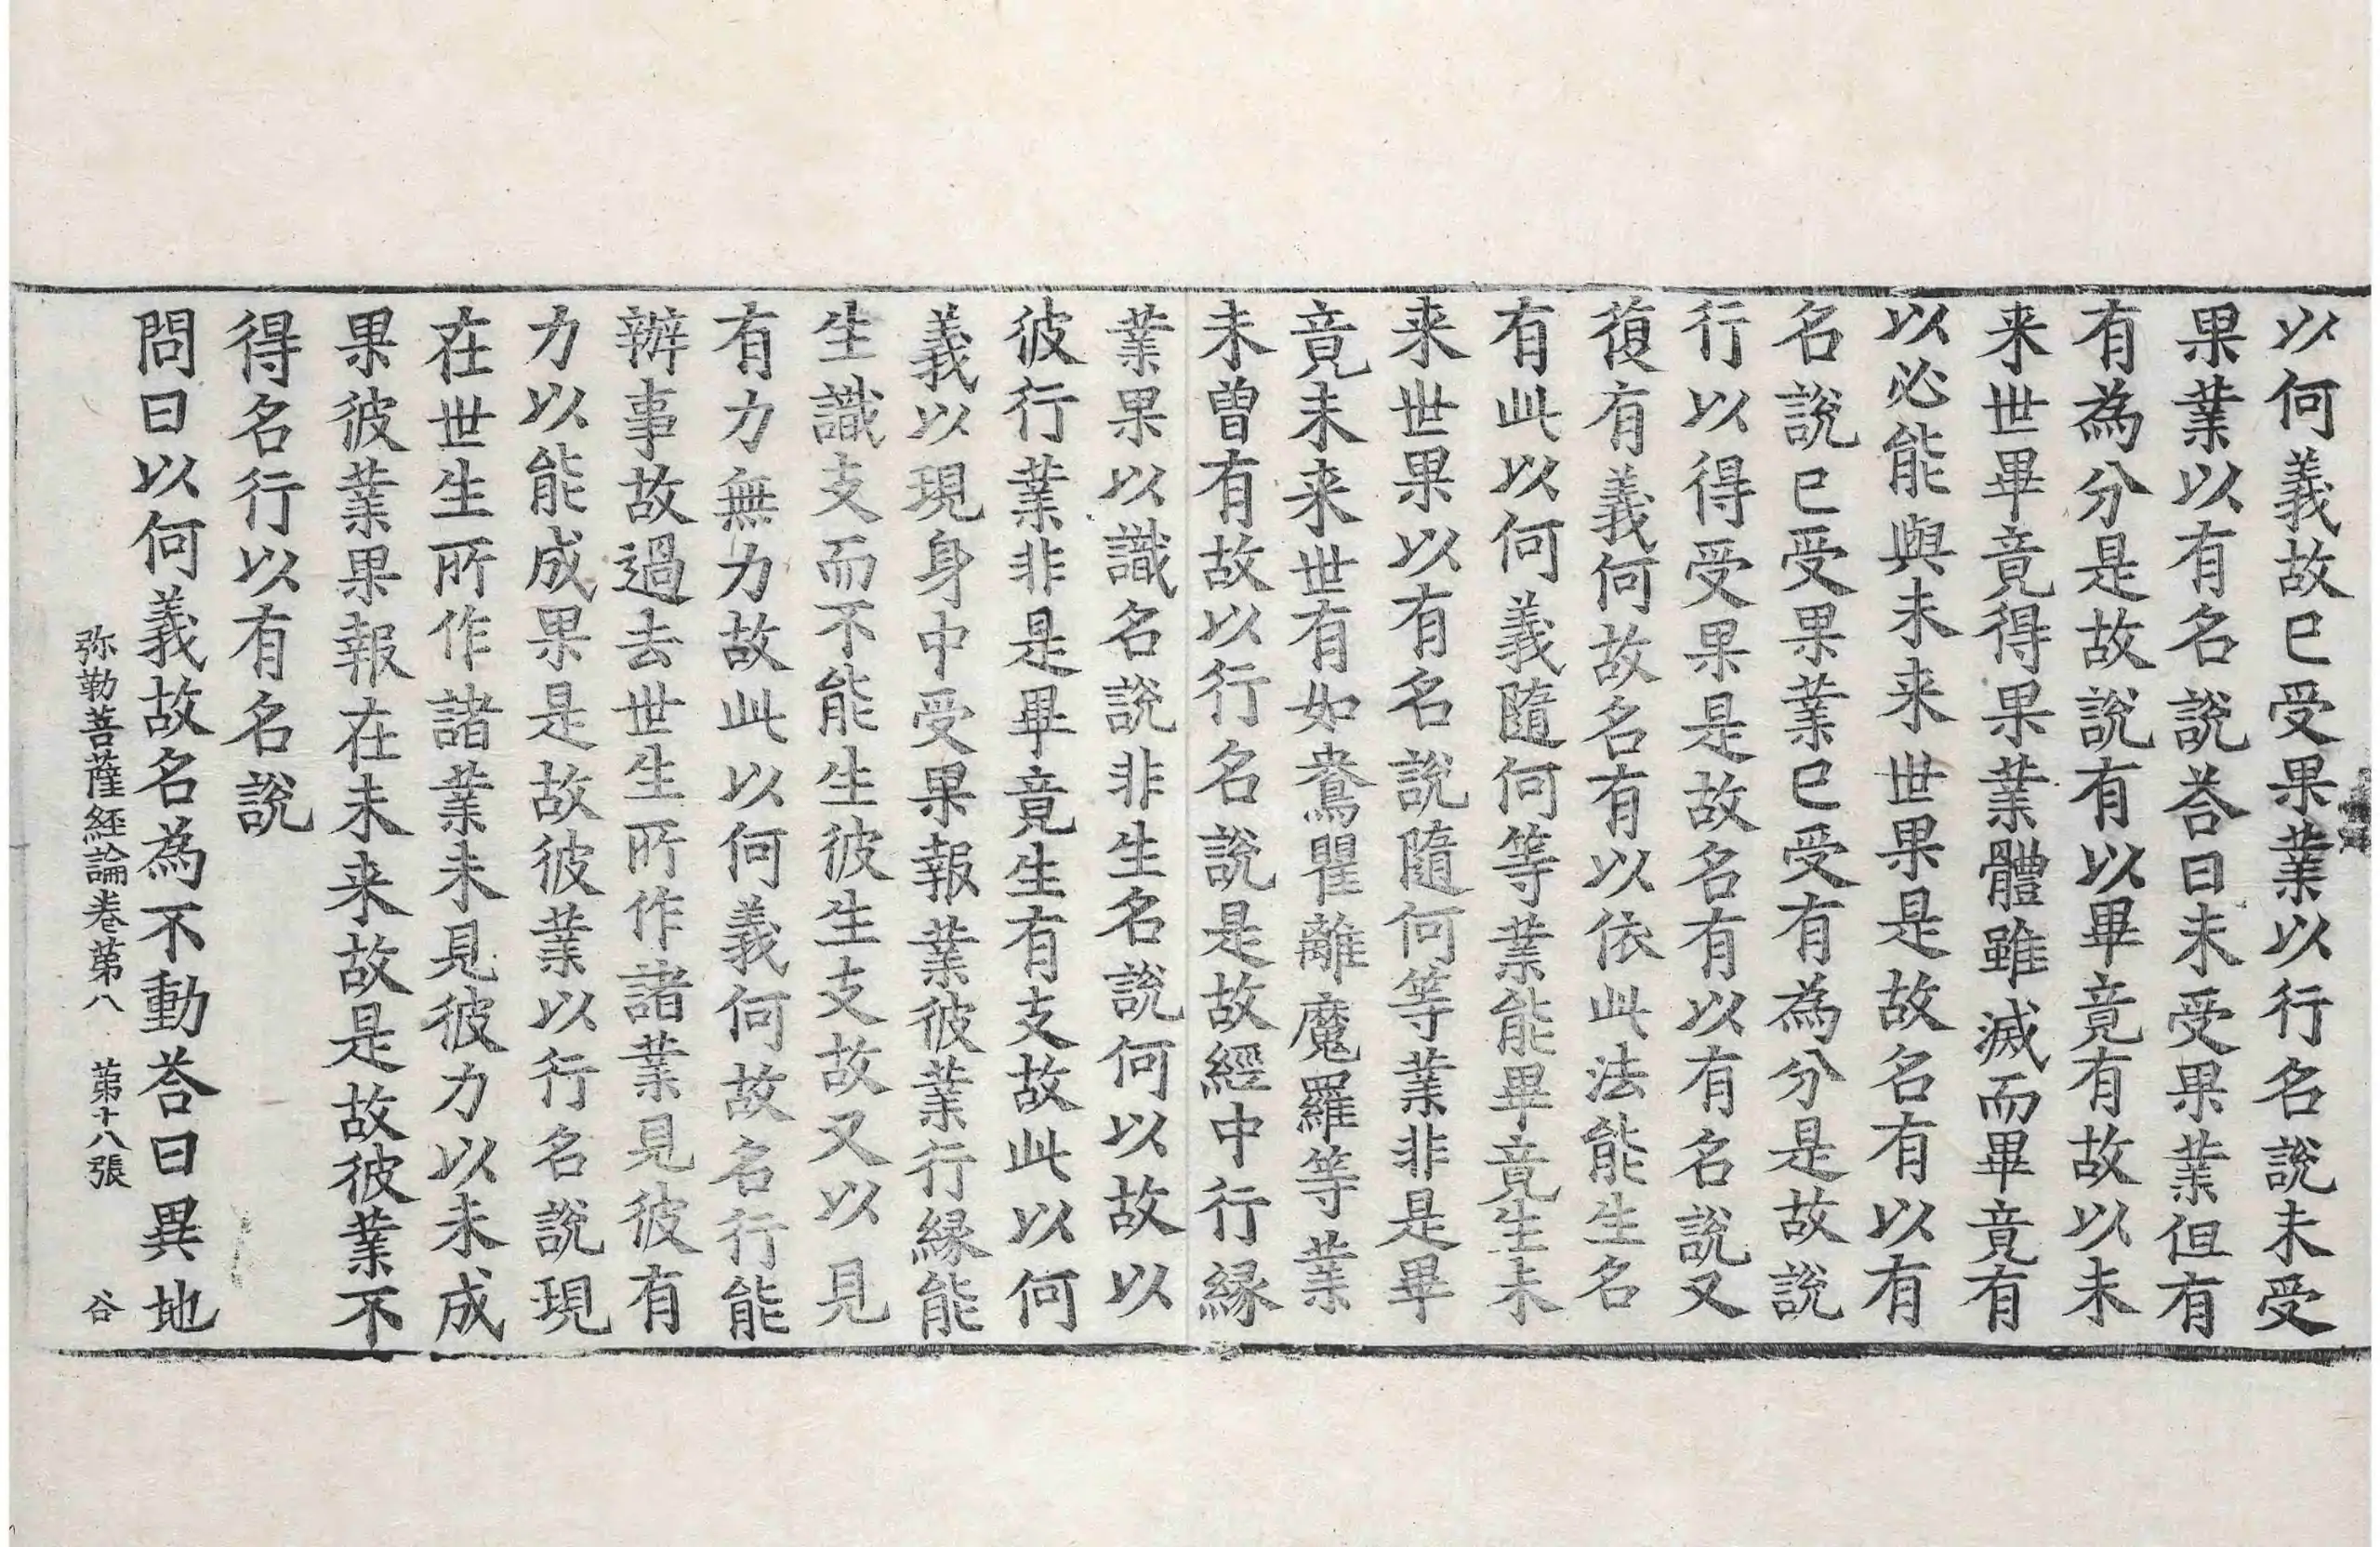 以何義故已受果業以行名說未受
果業以有名說荅曰未受果業但有
有為分是故說有以畢竟有故以未
来世畢竟得果業體雖滅而畢竟有
以必能與未来世果是故名有以有
名說已受果業已受有為分是故說
行以得受果是故名有以有名說又
復有義何故名有以依此法能生名
有此以何義隨何等業能畢竟生未
来世果以有名說隨何等業非是畢
竟未来世有如鴦瞿離魔羅等業
未曾有故以行名說是故經中行緣
業果以識名說非生名說何以故以
彼行業非是畢竟生有支故此以何
義以現身中受果報業彼業行緣能
生識支而不能生彼生支故又以見
有力無力故此以何義何故名行能
辦事故過去世生所作諸業見彼有
力以能成果是故彼業以行名說現
在世生所作諸業未見彼力以未成
果彼業果報在未来故是故彼業不
得名行以有名說
問曰以何義故名為不動荅曰異地
弥勒菩薩經論卷第八 第十八張 谷